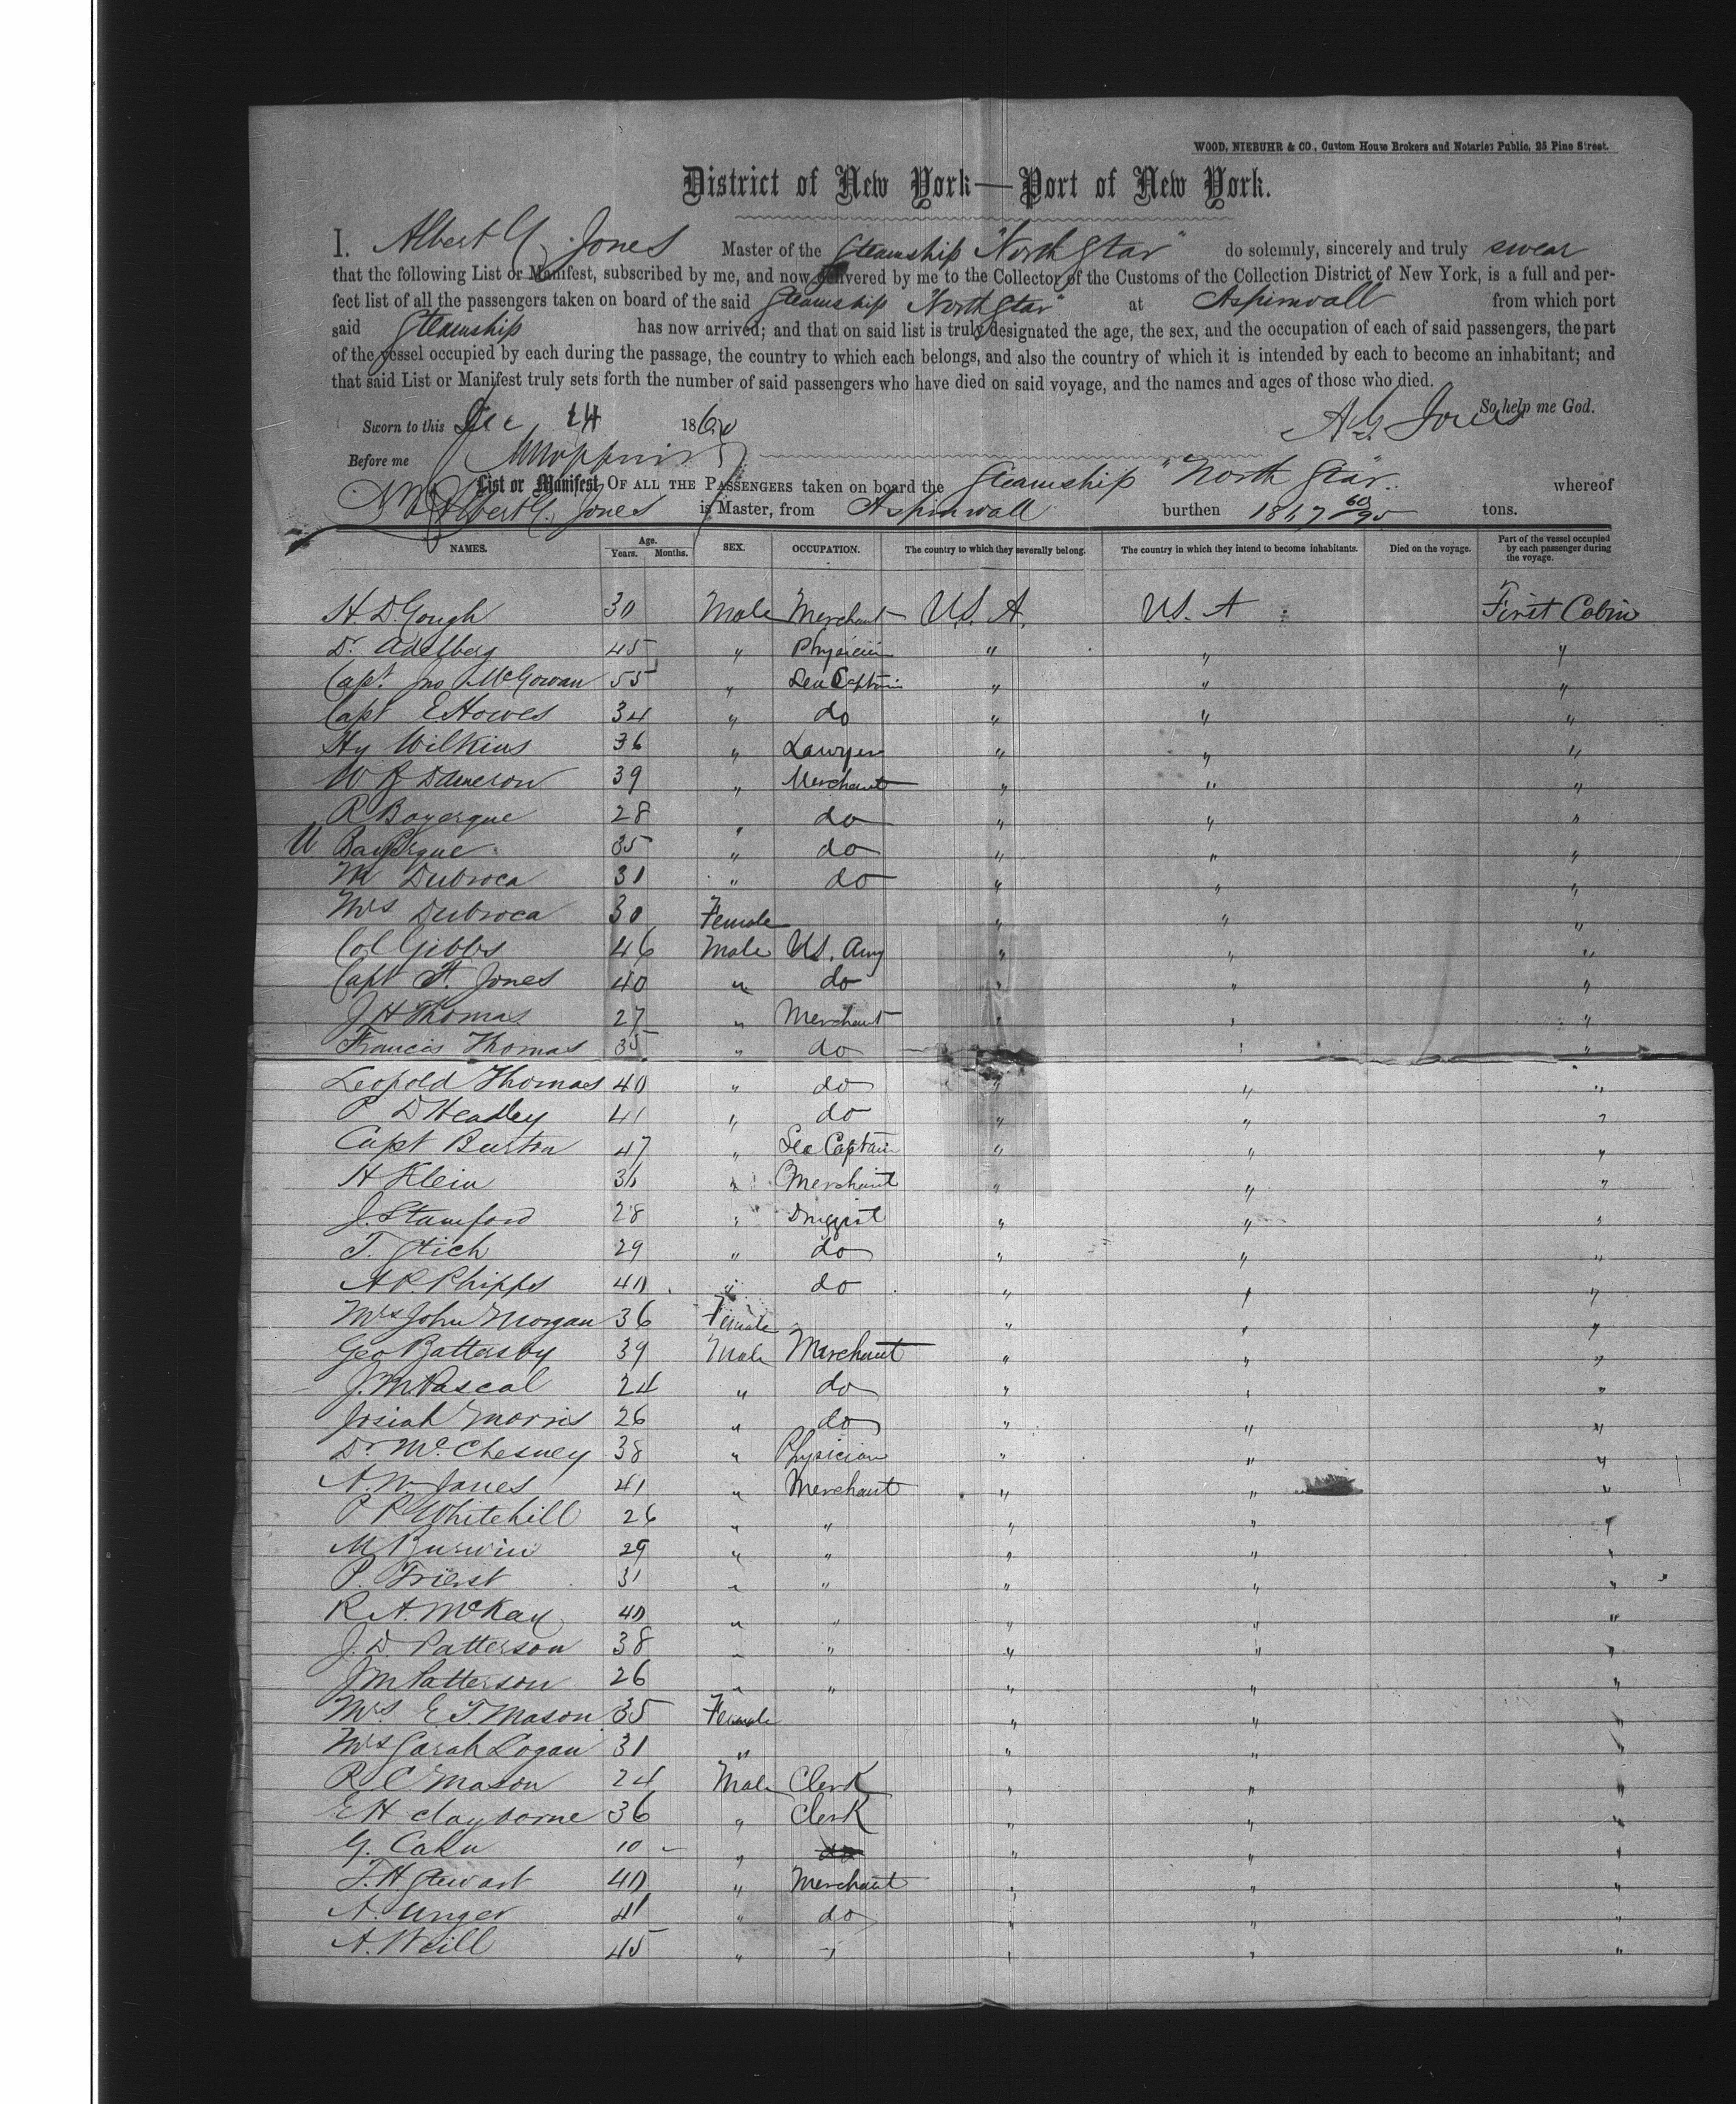 WOOD, NIEBUHR & CO., Custom House Brokers and Notaries Public, 25 Pine Street.
District of New York—Port of New York.
I. Albert G. Jones Master of the Steamship "North Star" do solemnly, sincerely and truly swear
that the following List or Manifest, subscribed by me, and now delivered by me to the Collector of the Customs of the Collection District of New York, is a full and per-
fect list of all the passengers taken on board of the said Steamship "North Star" at Aspinwall from which port
said Steamship has now arrived; and that on said list is truly designated the age, the sex, and the occupation of each of said passengers, the part
of the vessel occupied by each during the passage, the country to which each belongs, and also the country of which it is intended by each to become an inhabitant; and
that said List or Manifest truly sets forth the number of said passengers who have died on said voyage, and the names and ages of those who died.
So help me God.
Sworn to this Dec 24 1860 A G Jones
Before me
List or Manifest OF ALL THE PASSENGERS taken on board the Steamship "North Star" whereof
Albert G. Jones is Master, from Aspinwall burthen 1867 60/95 tons.
NAMES. Age. Years. Months. SEX. OCCUPATION. The country to which they severally belong. The country in which they intend to become inhabitants. Died on the voyage. Part of the vessel occupied by each passenger during the voyage.
H. D. Gough 30 Male Merchant U.S. A. U.S. A First Cabin
Dr. Adelberg 45 " Physician " " "
Capt. Jno McGowan 55 " Sea Captain " " "
Capt E Howes 34 " do " " "
Hy Wilkins 36 " Lawyer " " "
W B Dameron 39 " Merchant " " "
R Bayerque 28 " do " " "
U Bayerque 35 " do " " "
M Dubroca 31 " do " " "
Mrs Dubroca 30 Female " " "
Col Gibbs 46 Male U.S. Army " " "
Capt F. Jones 40 " do " " "
J H Thomas 27 " Merchant " " "
Francis Thomas 35 " do " "
Leopold Thomas 40 " do " " "
P D Headley 41 " do " " "
Capt Burton 47 " Sea Captain " " "
H Klein 31 " Merchant " " "
J. Stamford 28 " Druggist " " "
T. Stich 29 " do " " "
A R Phipps 40 " do " " "
Mrs John Morgan 36 Female " " "
Geo Battersby 39 Male Merchant " " "
J. M Pascal 24 " do " " "
Josiah Morris 26 " do " " "
Dr McChesney 38 " Physician " " "
A. W. Janes 41 " Merchant " " "
P P Whitehill 26 " " " " "
M Burwin 29 " " " " "
P. Trierst 31 " " " " "
R A. McKay 40 " " " " "
J. D. Patterson 38 " " " " "
J M Patterson 26 " " " " "
Mrs E. T. Mason 35 Female " " "
Mrs Sarah Logan 31 " " " "
R C Mason 24 Male Clerk " " "
E H Clayborne 36 " Clerk " " "
G. Cahn 10 – " do " " "
T. H Stewart 40 " Merchant " " "
A. Unger 41 " do " " "
A. Weill 45 " " " " "